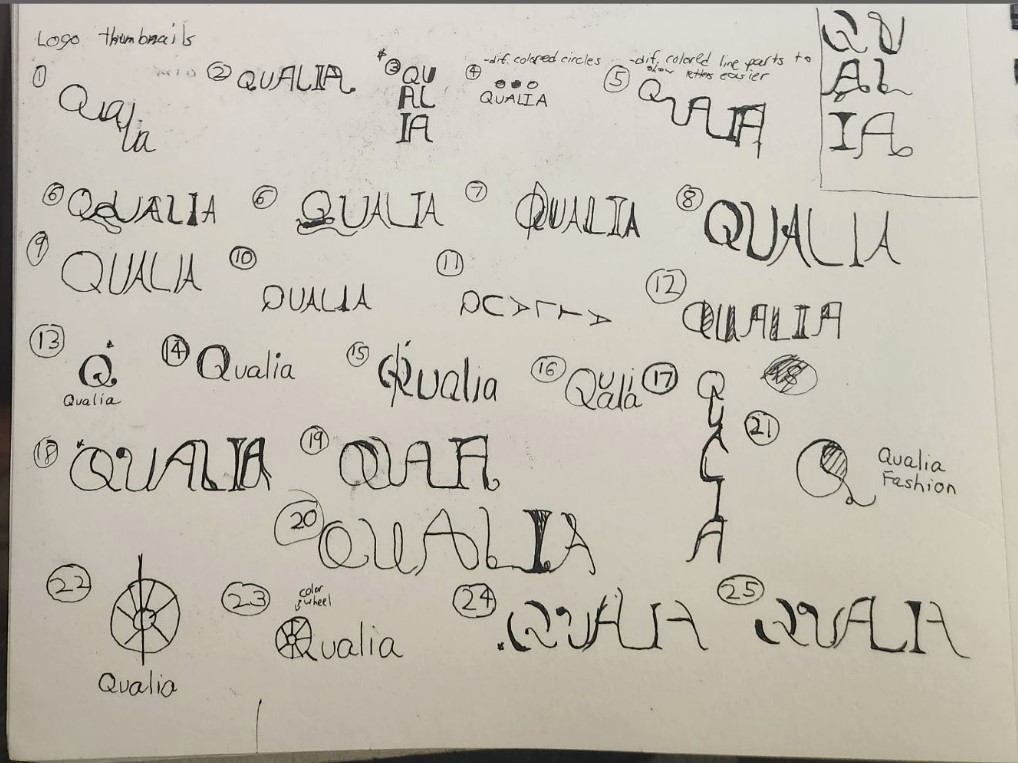 Logo thumbnails
① Qualia
② QUALIA
* ③ QU
AL
IA
-dif. colored circles
④ QUALIA
-dif. colored line parts to
show letters easier
⑤ QUALIA
QU
AL
IA
⑥ QUALIA
⑥ QUALIA
⑦ QUALIA
⑧ QUALIA
⑨ QUALIA
⑩ QUALIA
⑪
⑫ QUALIA
⑬ Q
Qualia
⑭ Qualia
⑮ Qualia
⑯ Qualia
⑰ QUALIA
⑱ QUALIA
⑲ QUALIA
⑳ QUALIA
㉑ Q
Qualia
Fashion
㉒ Qualia
㉓ color
wheel
Qualia
㉔ QUALIA
㉕ QUALIA